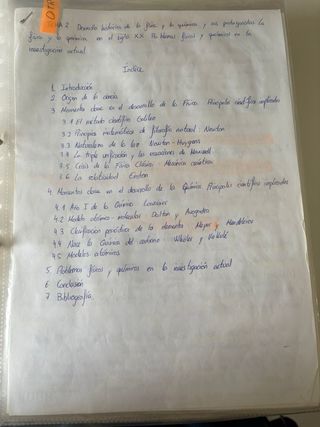 TEMA 2 Desarrollo histórico de la física y la química y sus protagonistas. La
física y la química en el siglo XX. Problemas físicos y químicos en la
investigación actual.
Índice
1. Introducción
2. Origen de la ciencia
3. Momentos clave en el desarrollo de la Física. Principales científicos implicados
3.1 El método científico. Galileo
3.2 Principios matemáticos de filosofía natural. Newton
3.3 Naturaleza de la luz. Newton - Huygens
3.4 La triple unificación y las ecuaciones de Maxwell
3.5 Crisis de la Física Clásica. Mecánica cuántica
3.6 La relatividad. Einstein
4. Momentos clave en el desarrollo de la Química. Principales científicos implicados
4.1 Año I de la Química. Lavoisier
4.2 Modelo atómico-molecular. Dalton y Avogadro
4.3 Clasificación periódica de los elementos. Meyer y Mendeleiev
4.4 Nace la Química del carbono. Wöhler y Kekulé
4.5 Modelos atómicos
5. Problemas físicos y químicos en la investigación actual
6. Conclusión
7. Bibliografía